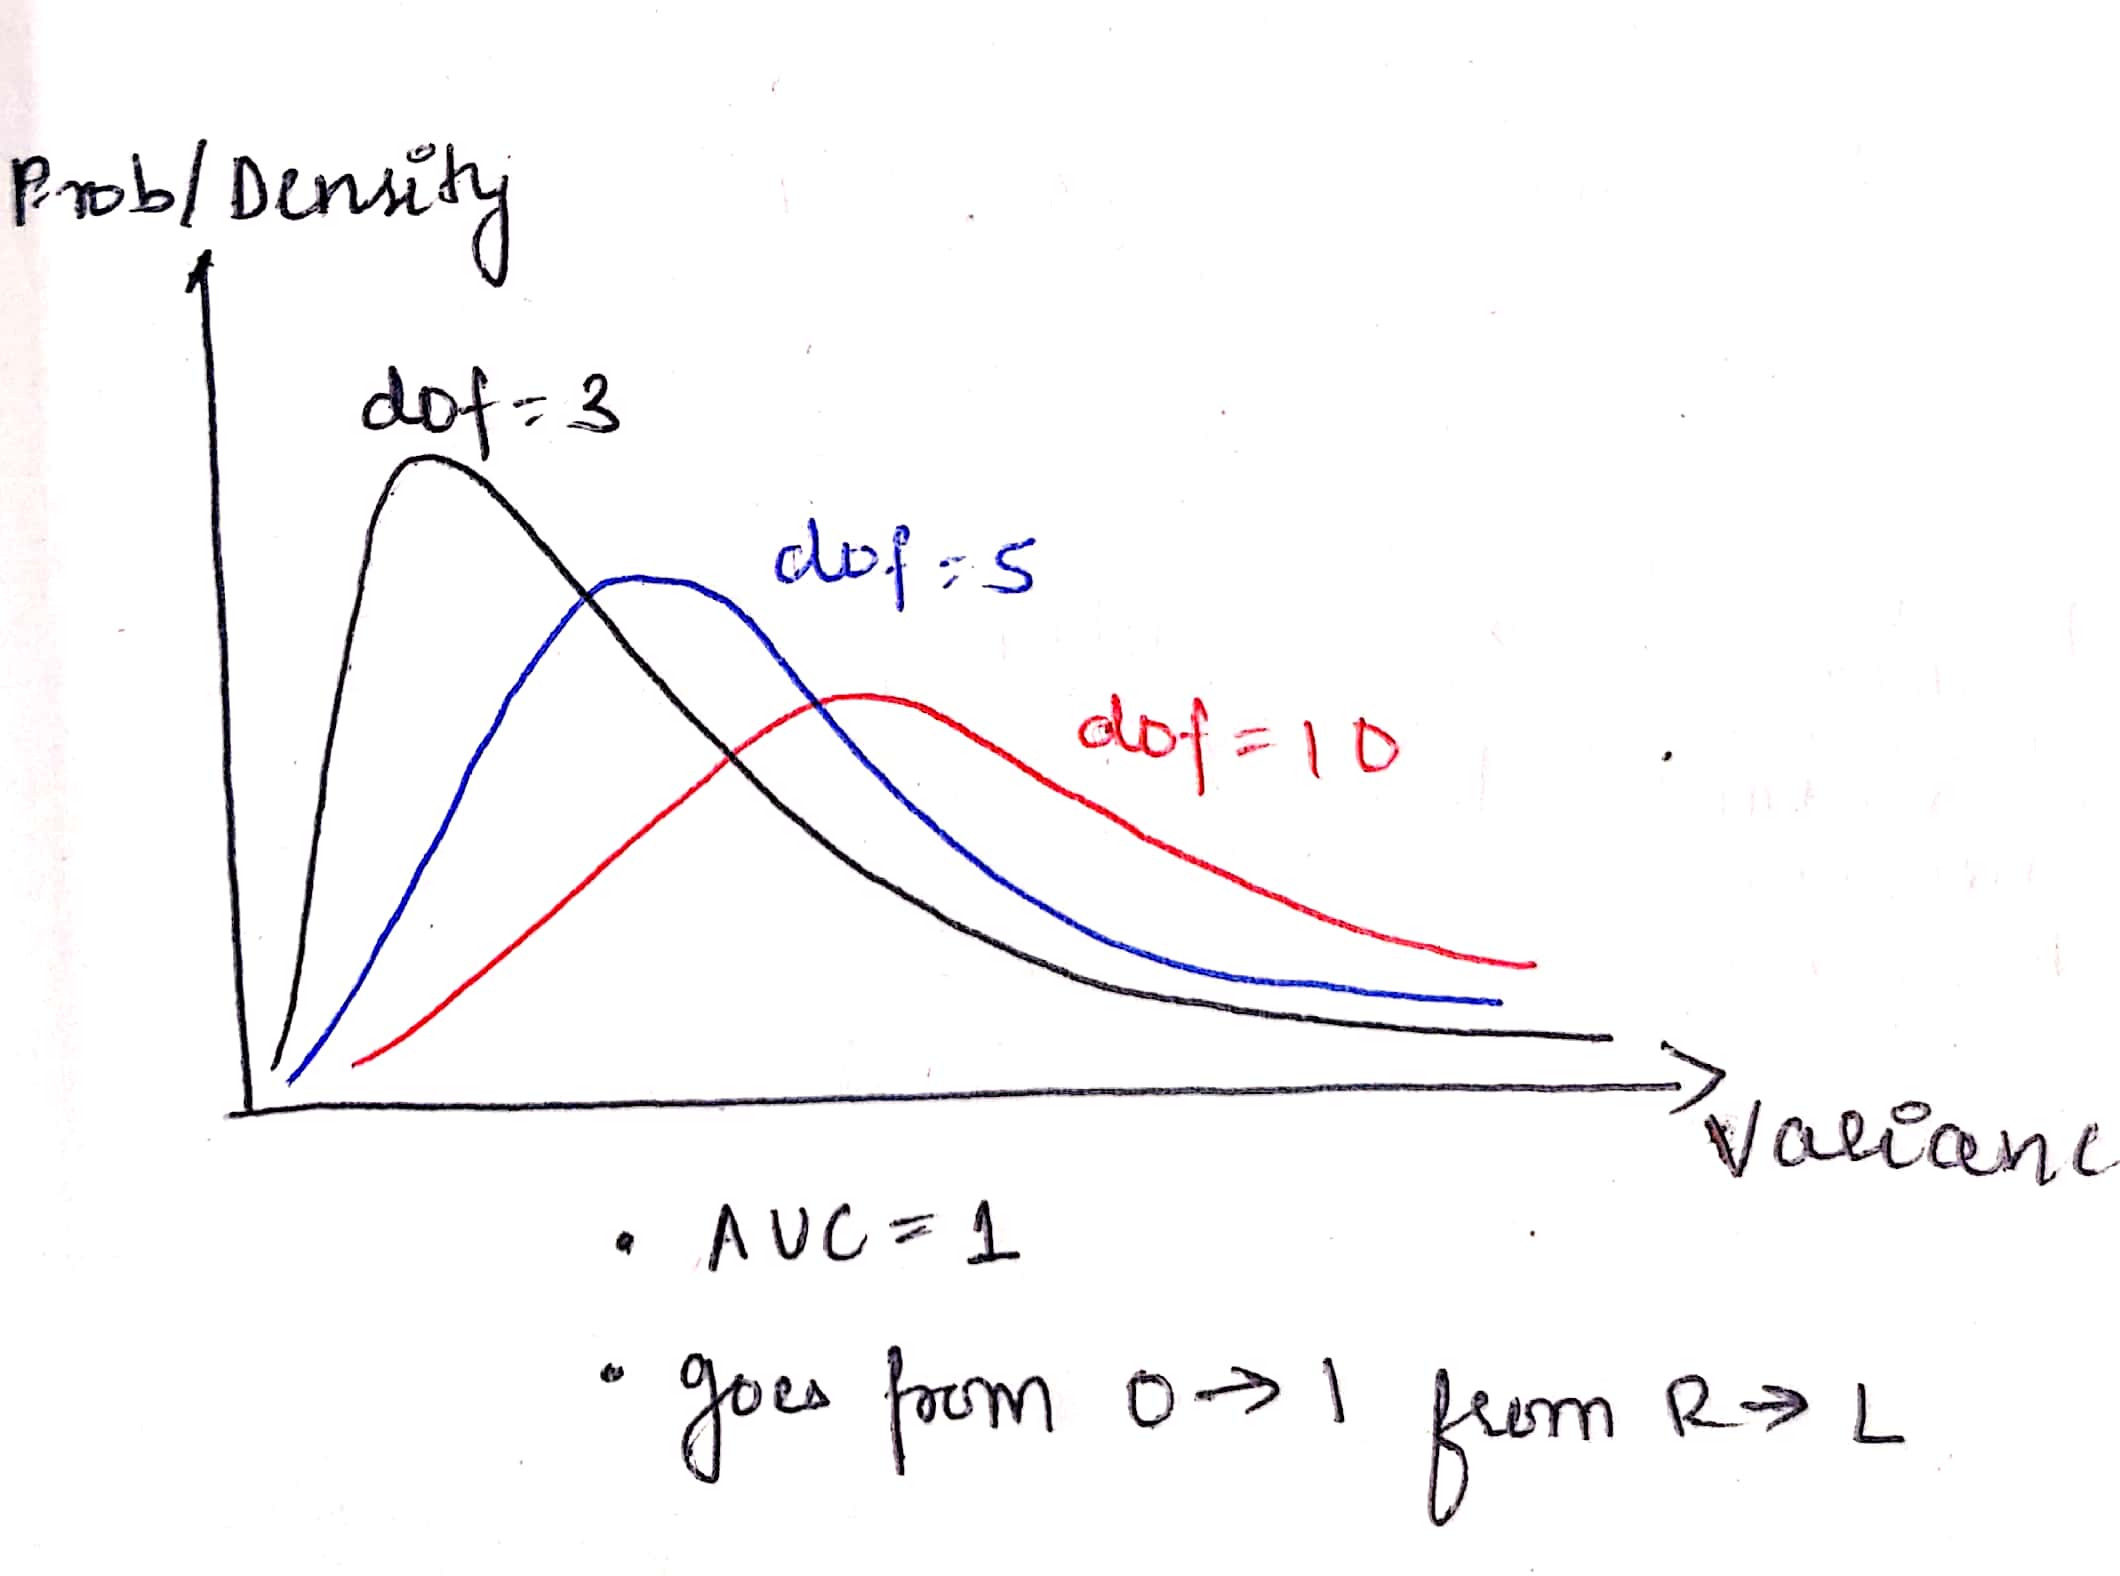 Prob/Density
dof = 3
dof = 5
dof = 10
Varianc
• AUC = 1
• goes from 0 → 1 from R → L